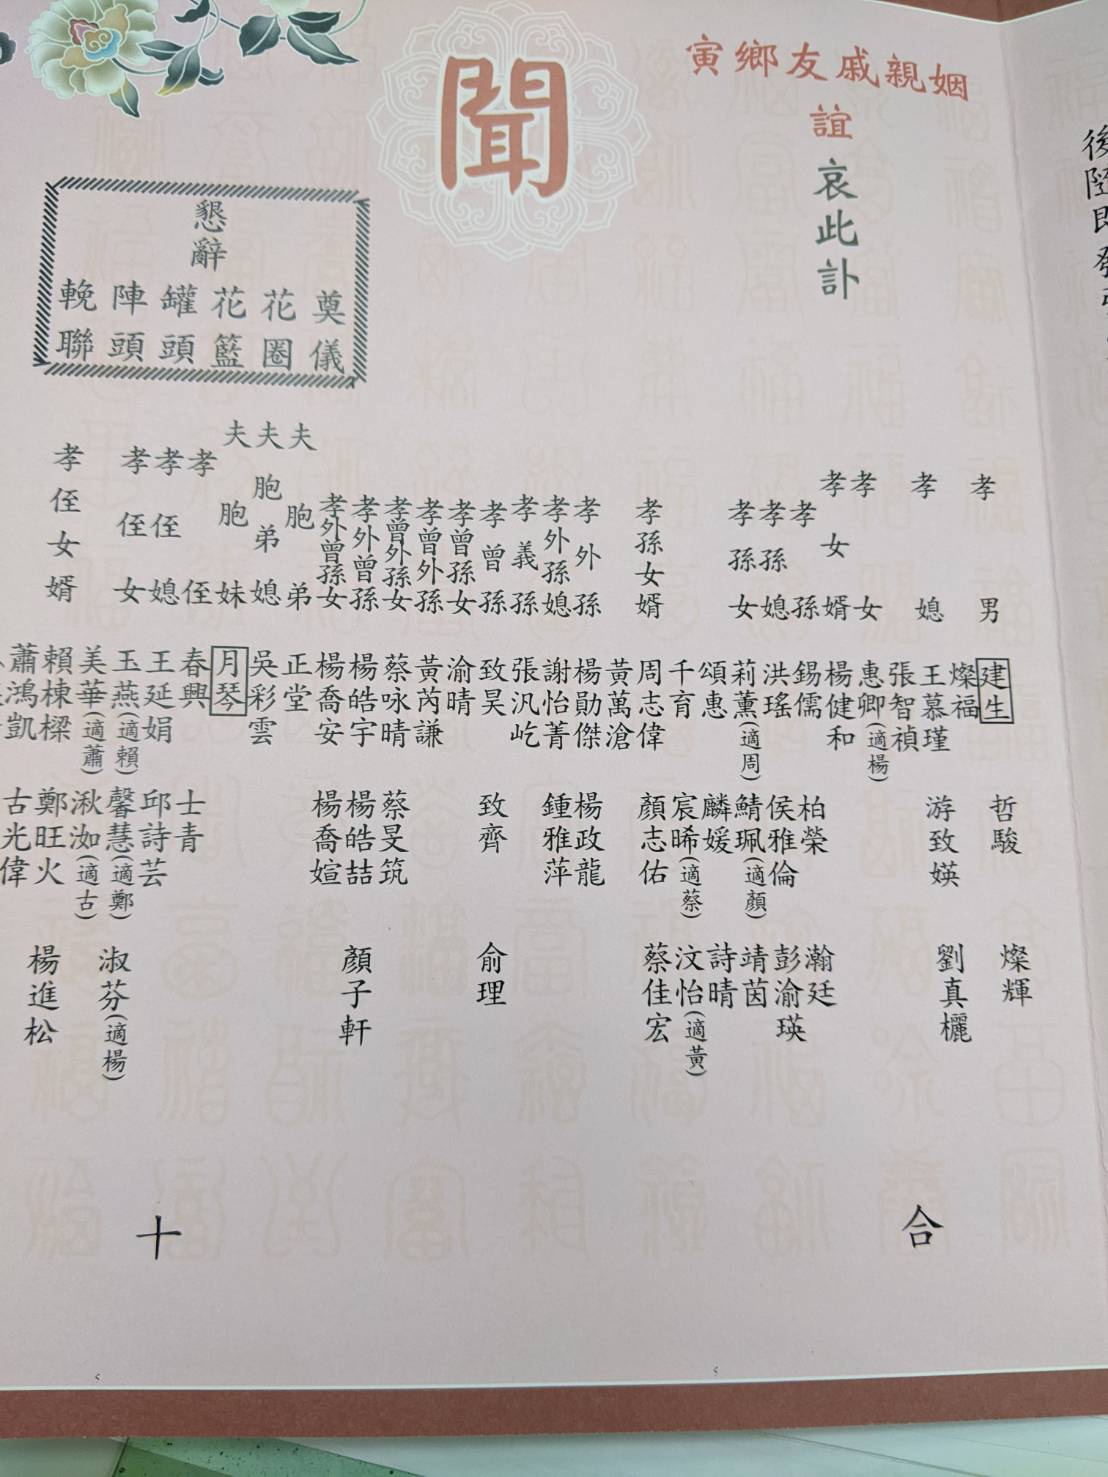 後隨即發
姻親戚友鄉寅
誼
哀此訃
聞
懇辭
奠儀
花圈
花籃
罐頭
陣頭
輓聯
孝男 建生 哲駿 燦輝
燦福
孝媳 王慕瑾 游致媖 劉真欐
張智禎
孝女 惠卿(適楊)
孝女婿 楊健和
孝孫 錫儒 柏榮 瀚廷
孝孫媳 洪瑤 侯雅倫 彭渝瑛
孝孫女 莉薰(適周) 鯖珮(適顏) 靖茵
頌惠 麟媛 詩晴
千育 宸晞(適蔡) 汶怡(適黃)
孝孫女婿 周志偉 顏志佑 蔡佳宏
黃萬滄
孝外孫 楊勛傑 楊政龍
孝外孫媳 謝怡菁 鍾雅萍
孝義孫 張汎屹
孝曾孫 致昊 致齊 俞理
孝曾孫女 渝晴
孝曾外孫 黃芮謙
孝曾外孫女 蔡咏晴 蔡旻筑
孝外曾孫 楊皓宇 楊皓喆 顏子軒
孝外曾孫女 楊喬安 楊喬媗
夫胞弟 正堂
夫胞弟媳 吳彩雲
夫胞妹 月琴
孝侄 春興 士青
孝侄媳 王延娟 邱詩芸
孝侄女 玉燕(適賴) 馨慧(適鄭) 淑芬(適楊)
美華(適蕭) 湫洳(適古)
孝侄女婿 賴棟樑 鄭旺火 楊進松
蕭鴻凱 古光偉
合十